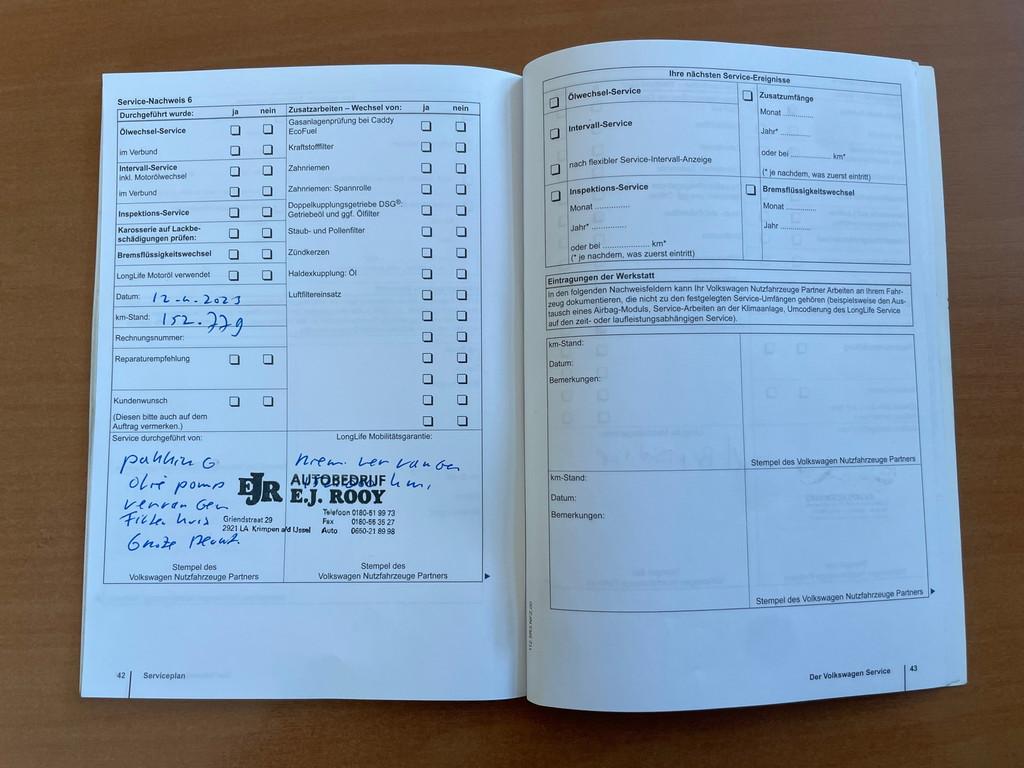 Service-Nachweis 6
Durchgeführt wurde: ja nein
Ölwechsel-Service
im Verbund
Intervall-Service
inkl. Motorölwechsel
im Verbund
Inspektions-Service
Karosserie auf Lackbe-
schädigungen prüfen:
Bremsflüssigkeitswechsel
LongLife Motoröl verwendet
Datum: 12-4-2023
km-Stand: 152.779
Rechnungsnummer:
Reparaturempfehlung
Kundenwunsch
(Diesen bitte auch auf dem
Auftrag vermerken.)
Zusatzarbeiten – Wechsel von: ja nein
Gasanlagenprüfung bei Caddy
EcoFuel
Kraftstofffilter
Zahnriemen
Zahnriemen: Spannrolle
Doppelkupplungsgetriebe DSG®:
Getriebeöl und ggf. Ölfilter
Staub- und Pollenfilter
Zündkerzen
Haldexkupplung: Öl
Luftfiltereinsatz
Service durchgeführt von:
pakking
olie pomp
vervangen
Filter huis
Grote beurt.
LongLife Mobilitätsgarantie:
riem vervangen
km.
EJR AUTOBEDRIJF
E.J. ROOY
Griendstraat 29
2921 LA Krimpen a/d IJssel
Telefoon 0180-51 99 73
Fax 0180-55 35 27
Auto 0650-21 89 98
Stempel des
Volkswagen Nutzfahrzeuge Partners
Stempel des
Volkswagen Nutzfahrzeuge Partners
42 Serviceplan
Ihre nächsten Service-Ereignisse
Ölwechsel-Service
Intervall-Service
nach flexibler Service-Intervall-Anzeige
Inspektions-Service
Monat ..............
Jahr* ..............
oder bei .................... km*
(* je nachdem, was zuerst eintritt)
Zusatzumfänge
Monat ............
Jahr* ............
oder bei ................ km*
(* je nachdem, was zuerst eintritt)
Bremsflüssigkeitswechsel
Monat ............
Jahr ............
Eintragungen der Werkstatt
In den folgenden Nachweisfeldern kann Ihr Volkswagen Nutzfahrzeuge Partner Arbeiten an Ihrem Fahr-
zeug dokumentieren, die nicht zu den festgelegten Service-Umfängen gehören (beispielsweise den Aus-
tausch eines Airbag-Moduls, Service-Arbeiten an der Klimaanlage, Umcodierung des LongLife Service
auf den zeit- oder laufleistungsabhängigen Service).
km-Stand:
Datum:
Bemerkungen:
Stempel des Volkswagen Nutzfahrzeuge Partners
km-Stand:
Datum:
Bemerkungen:
Stempel des Volkswagen Nutzfahrzeuge Partners
Der Volkswagen Service 43